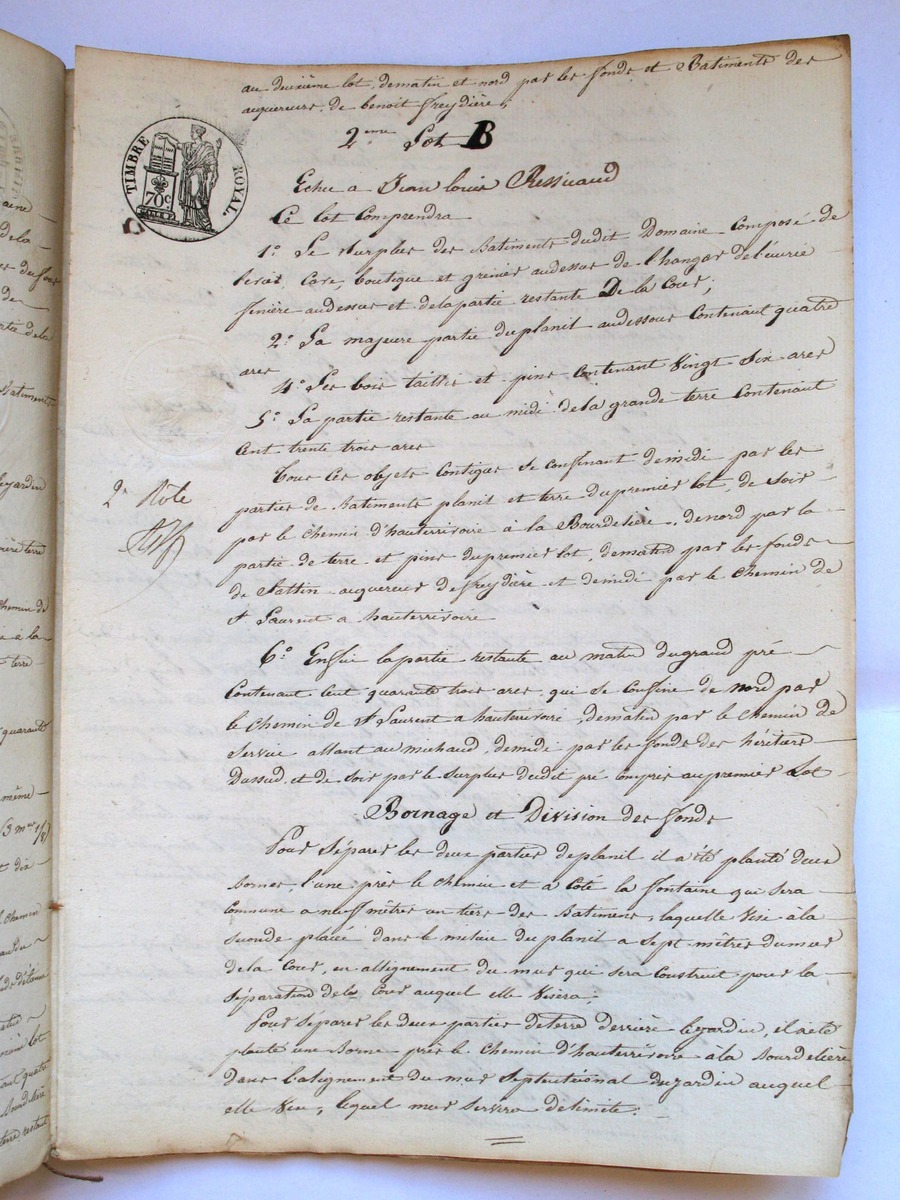 au deuxième lot, de matin et nord par les fonds et Batiments des
acquereurs de benoit freydière,
2eme Lot B
Echu a Jean louis Ressicaud
Ce lot Comprendra
1º Le Surplus des Batiments dudit Domaine Composé de
Cave, boutique et grenier audessus de l'hangar de l'écurie
finière audessus et de la partie restante De la Cour;
2º La majeure partie du planit audessous Contenant quatre
ares
4º Les bois taillis et pins Contenant Vingt Six ares
5º La partie restante au midi de la grande terre Contenant
Cent trente trois ares
Tous Ces objets Contigus Se Confinant de midi par les
parties de Batiments planit et terre du premier lot, de soir
par le Chemin d'hauterrivoire à la Bourdelière, de nord par la
partie de terre et pins du premier lot, de matin par les fonds
de Lattin acquereur de freydière et de midi par le Chemin de
St Laurent a hauterrivoire
6º Enfin la partie restante au matin du grand pré
Contenant Cent quarante trois ares qui Se Confine de nord par
le Chemin de St Laurent a hauterrivoire, de matin par le Chemin de
Service allant au michaud, de midi par les fonds des héritiers
Dussud et de Soir par le Surplus dudit pré compris au premier Lot
Bornage et Division des fonds
Pour Séparer les deux parties de planit il a été planté deux
bornes, l'une près le Chemin et a Coté la fontaine qui Sera
Commune a neuf mètres un tiers des Batimens, laquelle Vise à la
seconde placée dans le milieu du planit a Sept mètres du mur
de la Cour, en allignement du mur qui Sera Construit pour la
Séparation de la Cour auquel elle Visera;
Pour Séparer les deux parties de terre derrière le jardin, il a été
planté une Borne près le Chemin d'hauterrivoire à la Bourdelière
dans l'alignement du mur Septentrional du jardin auquel
elle Vise, lequel mur Servira de limite.
TIMBRE ROYAL.
70c
2e Rôle